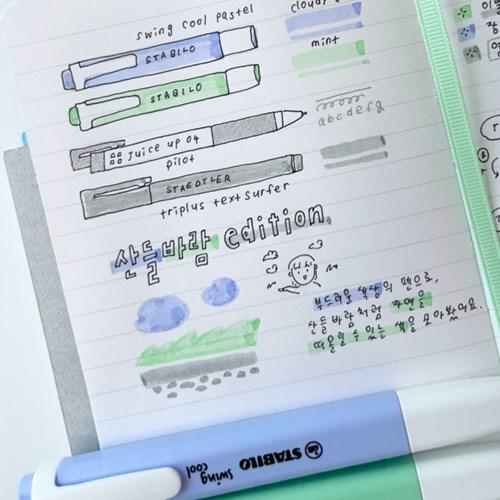 swing cool pastel
STABILO
STABILO
cloudy
mint
Juice up 04
pilot
abcdefg
STAEDTLER
triplus textsurfer
산들바람 edition
부드러운 색상의 펜으로,
산들바람처럼 자연을
떠올릴 수 있는 색을 모아봤어요.
STABILO
swing
cool